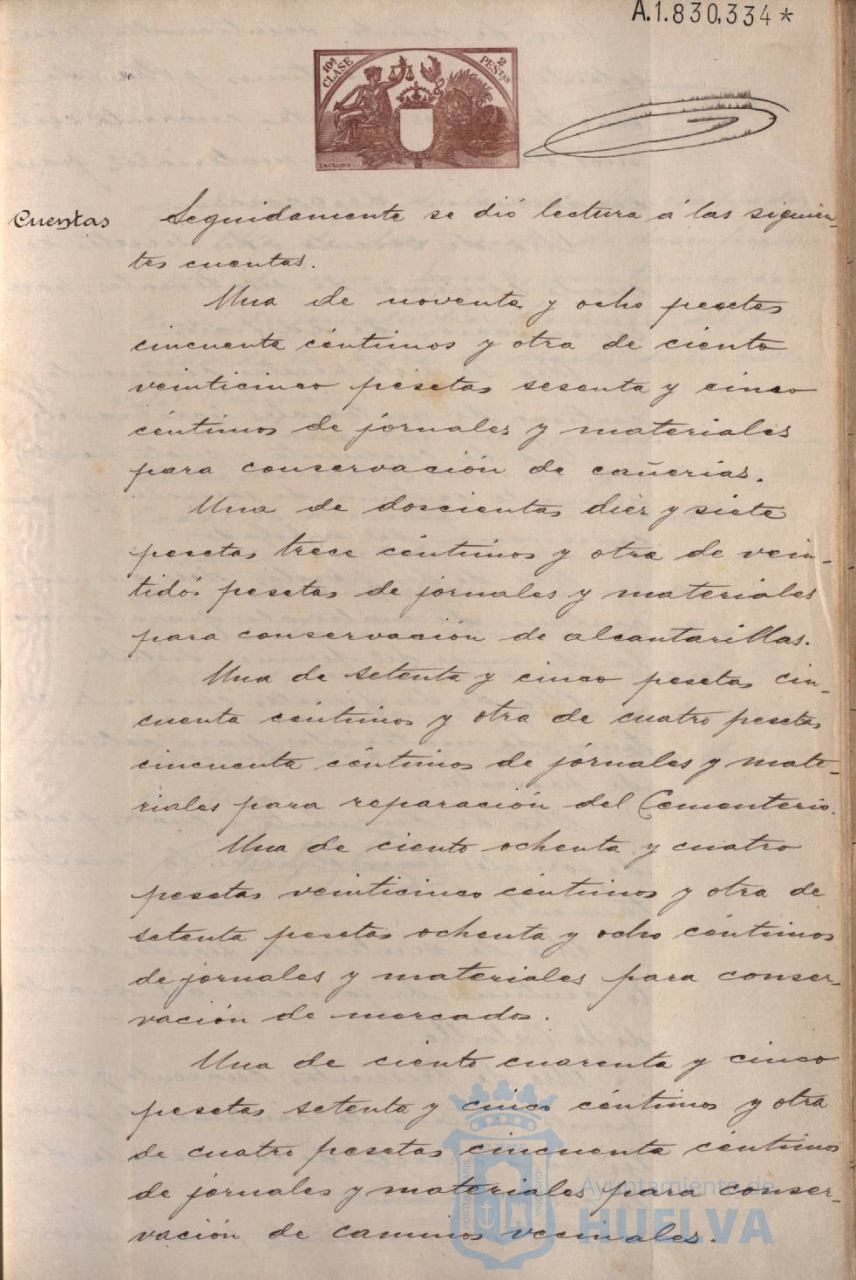 A.1.830,334*
10ª CLASE
2 PESTAS
Cuentas
Seguidamente se dió lectura á las siguien-
tes cuentas.
Una de noventa y ocho pesetas
cincuenta céntimos y otra de ciento
veinticinco pesetas sesenta y cinco
céntimos de jornales y materiales
para conservación de cañerias.
Una de doscientas diez y siete
pesetas trece céntimos y otra de vein-
tidós pesetas de jornales y materiales
para conservación de alcantarillas.
Una de setenta y cinco pesetas cin-
cuenta céntimos y otra de cuatro pesetas
cincuenta céntimos de jornales y mate-
riales para reparación del Cementerio.
Una de ciento ochenta y cuatro
pesetas veinticinco céntimos y otra de
setenta pesetas ochenta y ocho céntimos
de jornales y materiales para conser-
vación de mercados.
Una de ciento cuarenta y cinco
pesetas setenta y cinco céntimos y otra
de cuatro pesetas cincuenta céntimos
de jornales y materiales para conser-
vación de caminos vecinales.
Ayuntamiento de
HUELVA